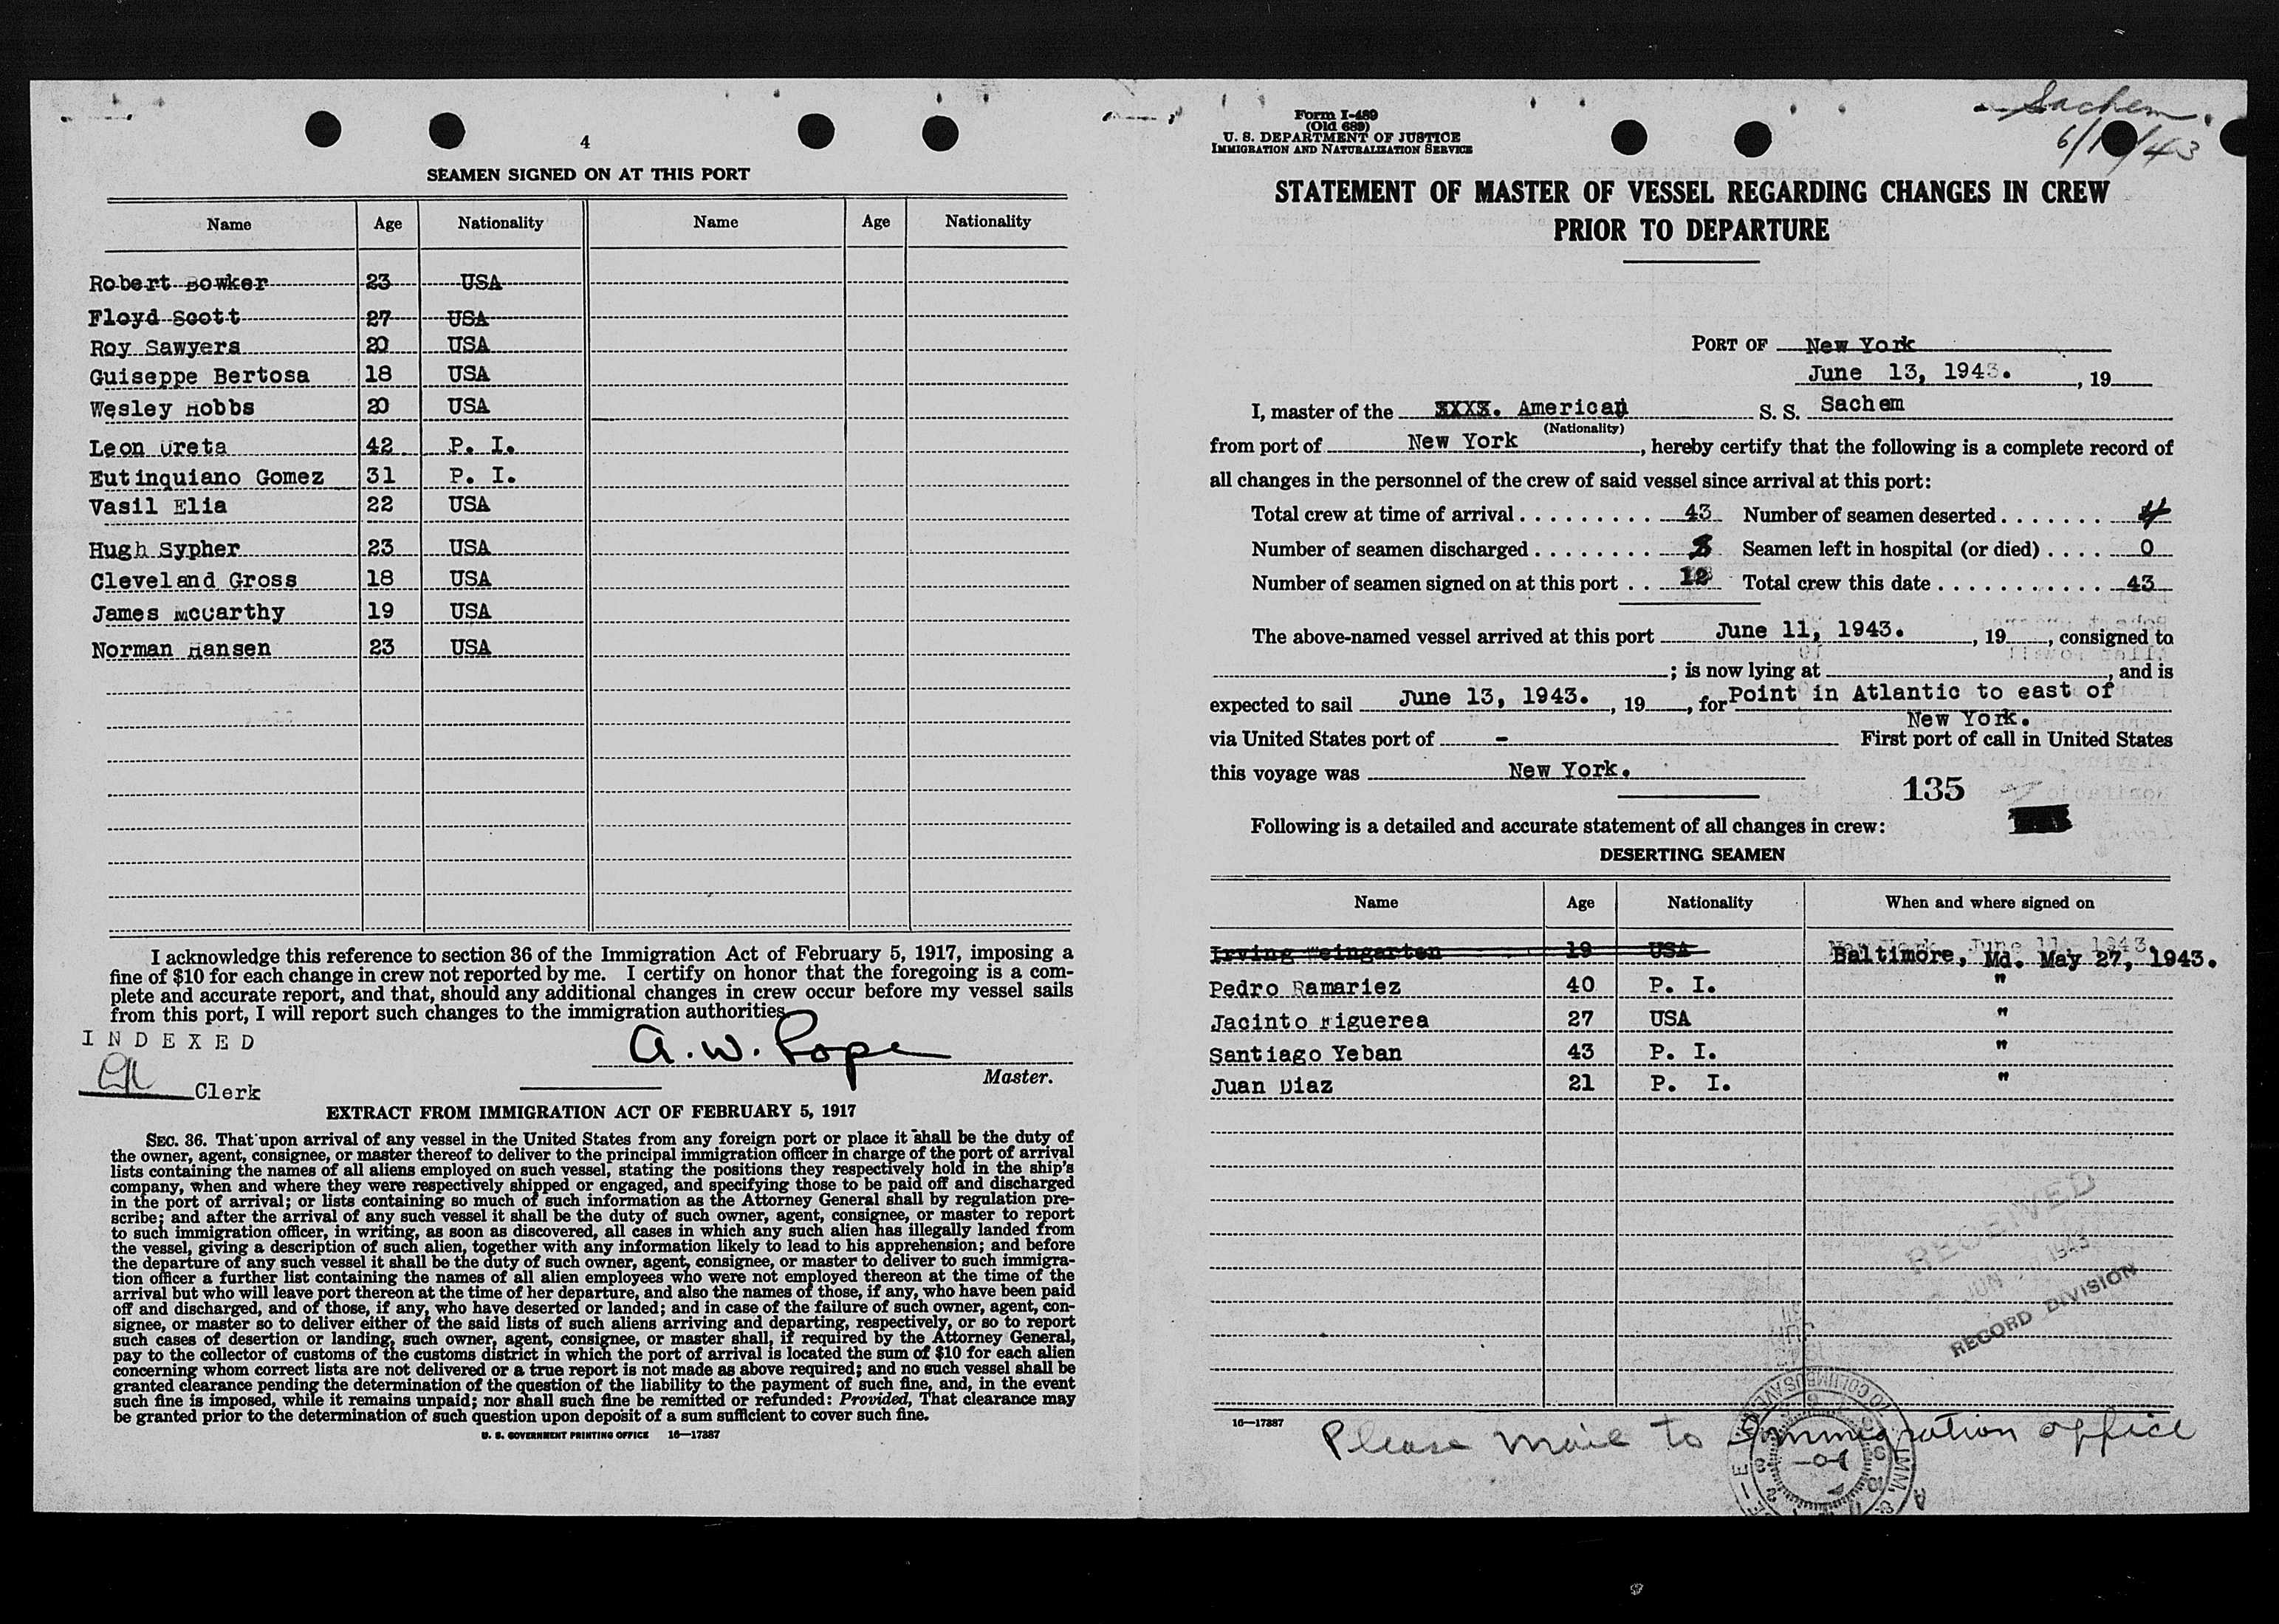 4
SEAMEN SIGNED ON AT THIS PORT
Name Age Nationality Name Age Nationality
Robert Bowker 23 USA
Floyd Scott 27 USA
Roy Sawyers 20 USA
Guiseppe Bertosa 18 USA
Wesley Hobbs 20 USA
Leon Ureta 42 P. I.
Eutinquiano Gomez 31 P. I.
Vasil Elia 22 USA
Hugh Sypher 23 USA
Cleveland Gross 18 USA
James McCarthy 19 USA
Norman Hansen 23 USA
I acknowledge this reference to section 36 of the Immigration Act of February 5, 1917, imposing a
fine of $10 for each change in crew not reported by me. I certify on honor that the foregoing is a com-
plete and accurate report, and that, should any additional changes in crew occur before my vessel sails
from this port, I will report such changes to the immigration authorities.
INDEXED
A. W. Pope
Master.
Clerk
EXTRACT FROM IMMIGRATION ACT OF FEBRUARY 5, 1917
SEC. 36. That upon arrival of any vessel in the United States from any foreign port or place it shall be the duty of
the owner, agent, consignee, or master thereof to deliver to the principal immigration officer in charge of the port of arrival
lists containing the names of all aliens employed on such vessel, stating the positions they respectively hold in the ship's
company, when and where they were respectively shipped or engaged, and specifying those to be paid off and discharged
in the port of arrival; or lists containing so much of such information as the Attorney General shall by regulation pre-
scribe; and after the arrival of any such vessel it shall be the duty of such owner, agent, consignee, or master to report
to such immigration officer, in writing, as soon as discovered, all cases in which any such alien has illegally landed from
the vessel, giving a description of such alien, together with any information likely to lead to his apprehension; and before
the departure of any such vessel it shall be the duty of such owner, agent, consignee, or master to deliver to such immigra-
tion officer a further list containing the names of all alien employees who were not employed thereon at the time of the
arrival but who will leave port thereon at the time of her departure, and also the names of those, if any, who have been paid
off and discharged, and of those, if any, who have deserted or landed; and in case of the failure of such owner, agent, con-
signee, or master so to deliver either of the said lists of such aliens arriving and departing, respectively, or so to report
such cases of desertion or landing, such owner, agent, consignee, or master shall, if required by the Attorney General,
pay to the collector of customs of the customs district in which the port of arrival is located the sum of $10 for each alien
concerning whom correct lists are not delivered or a true report is not made as above required; and no such vessel shall be
granted clearance pending the determination of the question of the liability to the payment of such fine, and, in the event
such fine is imposed, while it remains unpaid; nor shall such fine be remitted or refunded: Provided, That clearance may
be granted prior to the determination of such question upon deposit of a sum sufficient to cover such fine.
U. S. GOVERNMENT PRINTING OFFICE 16—17887
Sachem
Form I-489
(Old 689)
U. S. DEPARTMENT OF JUSTICE
IMMIGRATION AND NATURALIZATION SERVICE
STATEMENT OF MASTER OF VESSEL REGARDING CHANGES IN CREW
PRIOR TO DEPARTURE
PORT OF New York
June 13, 1943. , 19
I, master of the American S. S. Sachem
(Nationality)
from port of New York , hereby certify that the following is a complete record of
all changes in the personnel of the crew of said vessel since arrival at this port:
Total crew at time of arrival 43 Number of seamen deserted 4
Number of seamen discharged Seamen left in hospital (or died) 0
Number of seamen signed on at this port 12 Total crew this date 43
The above-named vessel arrived at this port June 11, 1943. , 19 , consigned to
; is now lying at , and is
expected to sail June 13, 1943. , 19 , for Point in Atlantic to east of
New York.
via United States port of - First port of call in United States
this voyage was New York.
135
Following is a detailed and accurate statement of all changes in crew:
DESERTING SEAMEN
Name Age Nationality When and where signed on
Irving Weingarten 19 USA Baltimore, Md. May 27, 1943.
Pedro Ramariez 40 P. I. "
Jacinto Figuerea 27 USA "
Santiago Yeban 43 P. I. "
Juan Diaz 21 P. I. "
RECEIVED
JUN 1943
RECORD DIVISION
16—17887
Please mail to Immigration office